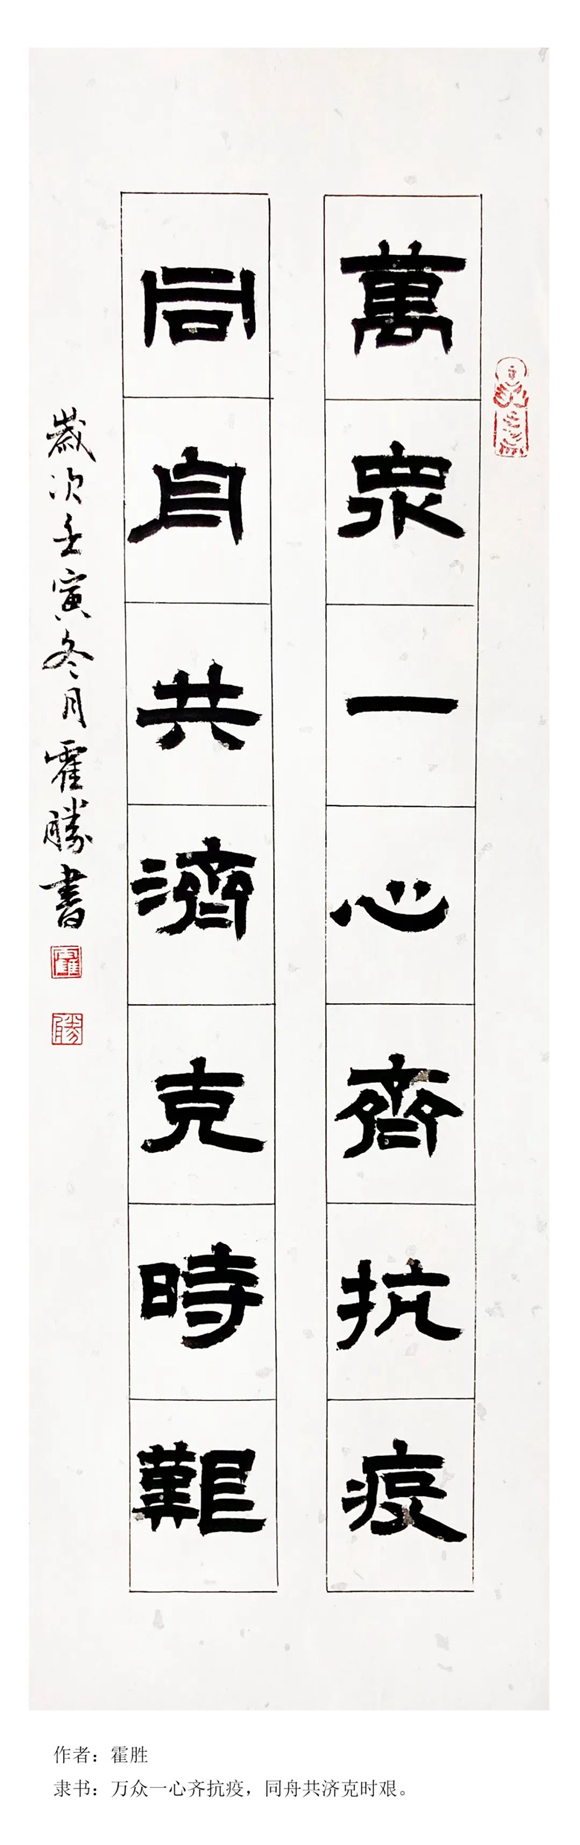 萬眾一心齊抗疫
同舟共濟克時艱
歲次壬寅冬月霍勝書
霍
勝
作者：霍胜
隶书：万众一心齐抗疫，同舟共济克时艰。